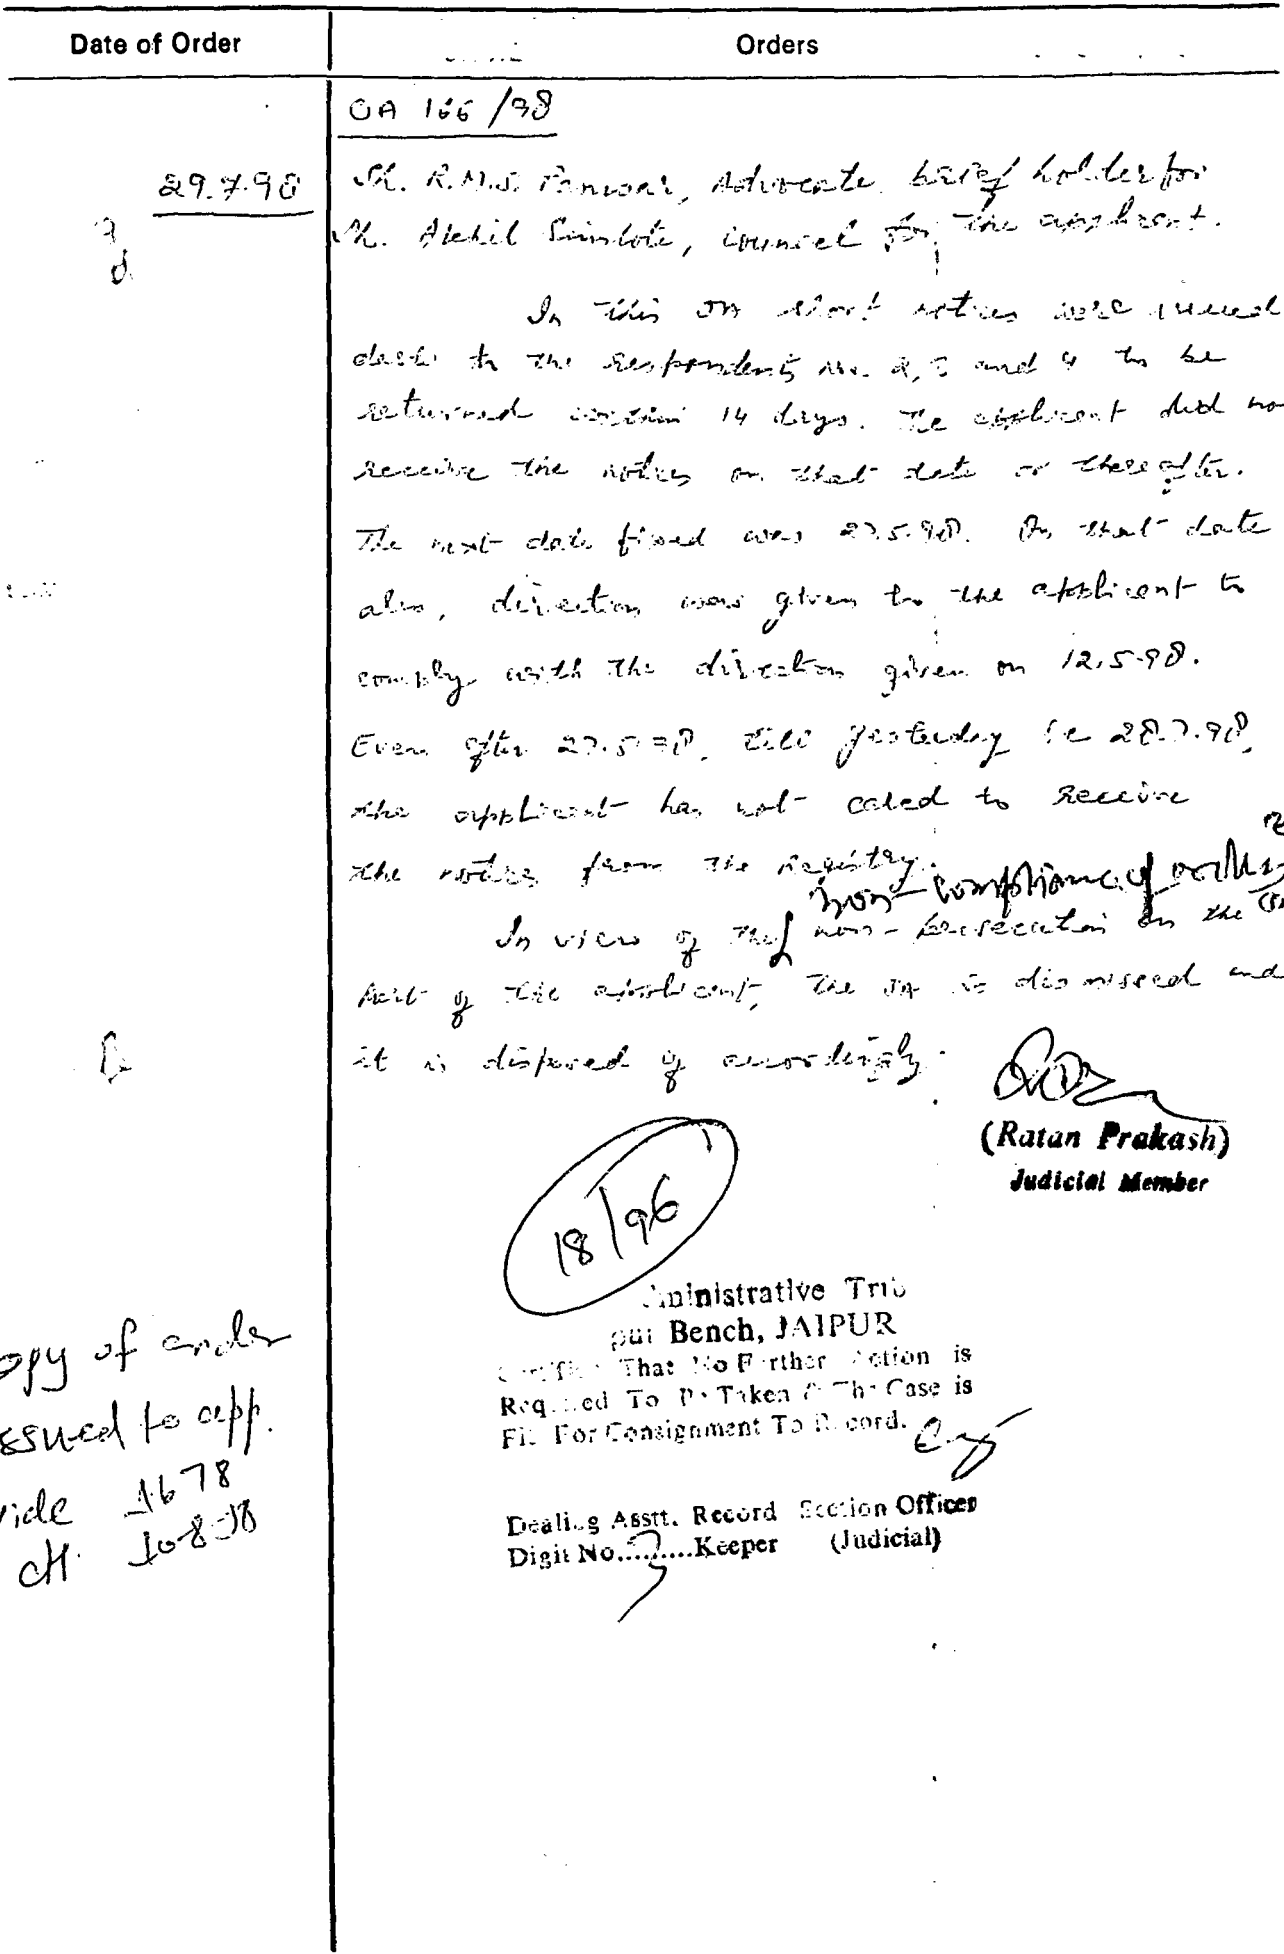 Date of Order
Orders
OA 166/98
29.7.98
Sh. R.M.S. Panwar, Advocate, brief holder for
Sh. Akhil Simlote, counsel for the applicant.
In this OA short notices were issued
dasti to the respondents No. 2, 3 and 4 to be
returned within 14 days. The applicant did no
receive the notices on that date or thereafter.
The next date fixed was 27.5.98. On that date
also, direction was given to the applicant to
comply with the direction given on 12.5.98.
Even after 27.5.98, till yesterday i.e 28.7.98,
the applicant has not cared to receive
the notices from the registry.
non-compliance of
In view of the non-prosecution on the
part of the applicant, the OA is dismissed and
it is disposed of accordingly.
(Ratan Prakash)
Judicial Member
18/96
ministrative Trib
pur Bench, JAIPUR
That No Further Action is
Required To Be Taken & The Case is
Fit For Consignment To Record.
Dealing Asstt. Record Section Officer
Digit No.........Keeper (Judicial)
opy of order
ssued to app.
vide 1678
dt. 10-8-98